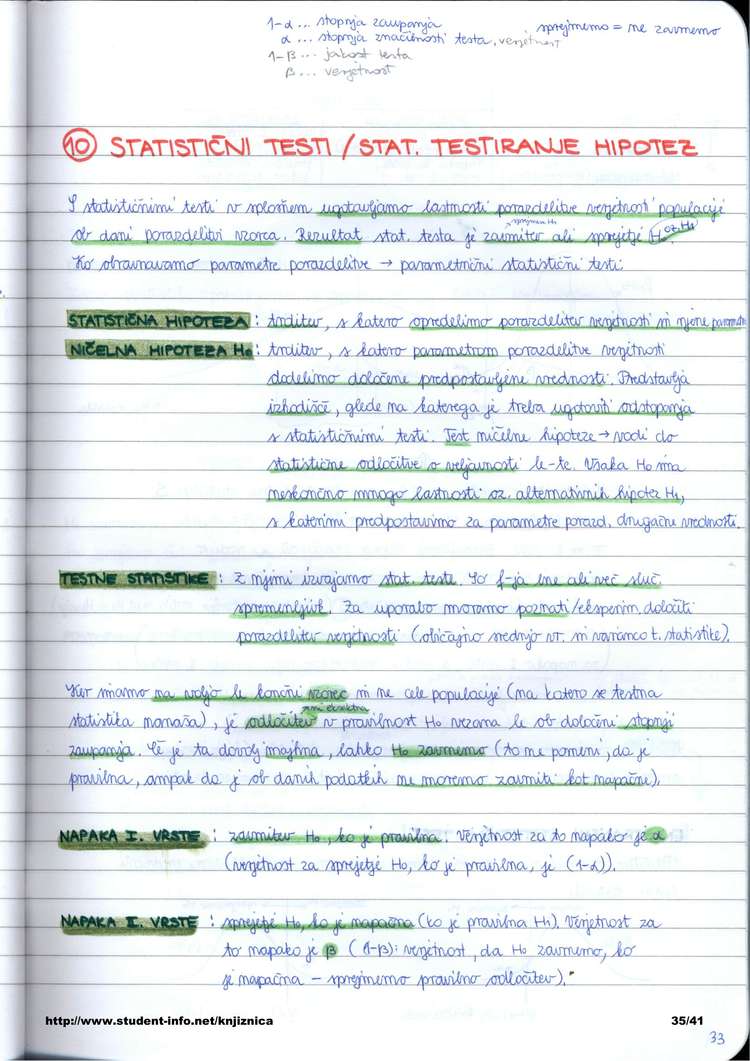 1-α ... stopnja zaupanja
α ... stopnja značilnosti testa, verjetnost
sprejmemo = ne zavrnemo
1-β ... jakost testa
β ... verjetnost
10 STATISTIČNI TESTI / STAT. TESTIRANJE HIPOTEZ
S statističnimi testi v splošnem ugotavljamo lastnosti porazdelitve verjetnosti populacije
ob dani porazdelitvi vzorca. Rezultat stat. testa je zavrnitev ali sprejetje H₀ oz. H₁
Ko obravnavamo parametre porazdelitve → parametrični statistični testi.
STATISTIČNA HIPOTEZA : trditev, s katero opredelimo porazdelitev verjetnosti in njene parametre
NIČELNA HIPOTEZA H₀ : trditev, s katero parametrom porazdelitve verjetnosti
dodelimo določene predpostavljene vrednosti. Predstavlja
izhodišče, glede na katerega je treba ugotoviti odstopanja
s statističnimi testi. Test ničelne hipoteze → vodi do
statistične odločitve o veljavnosti le-te. Vsaka H₀ ima
neskončno mnogo lastnosti oz. alternativnih hipotez H₁,
s katerimi predpostavimo za parametre porazd. drugačne vrednosti.
TESTNE STATISTIKE : Z njimi izvajamo stat. teste. So f-ja ene ali več sluč.
spremenljivk. Za uporabo moramo poznati/eksperim. določiti
porazdelitev verjetnosti (običajno srednjo vr. in varianco t. statistike).
Ker imamo na voljo le končni vzorec in ne cele populacije (na katero se testna
statistika nanaša), je odločitev v pravilnost H₀ vezana le ob določeni stopnji
zaupanja. Če je ta dovolj majhna, lahko H₀ zavrnemo (to ne pomeni, da je
pravilna, ampak da je ob danih podatkih ne moremo zavrniti kot napačne).
NAPAKA I. VRSTE : zavrnitev H₀, ko je pravilna. Verjetnost za to napako je α
(verjetnost za sprejetje H₀, ko je pravilna, je (1-α)).
NAPAKA II. VRSTE : sprejetje H₀, ko je napačna (ko je pravilna H₁). Verjetnost za
to napako je β (1-β): verjetnost, da H₀ zavrnemo, ko
je napačna – sprejmemo pravilno odločitev).
http://www.student-info.net/knjiznica
35/41
33